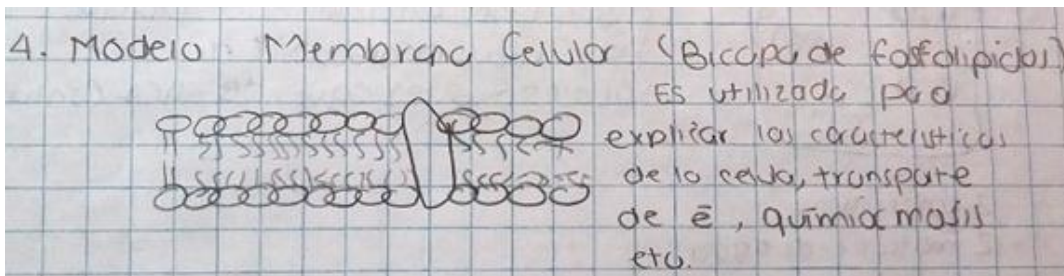 4. Modelo Membrana Celular (Bicapa de fosfolipidos)
Es utilizada para
explicar las caracteristicas
de la celula, transporte
de ē, quimiosmosis
etc.